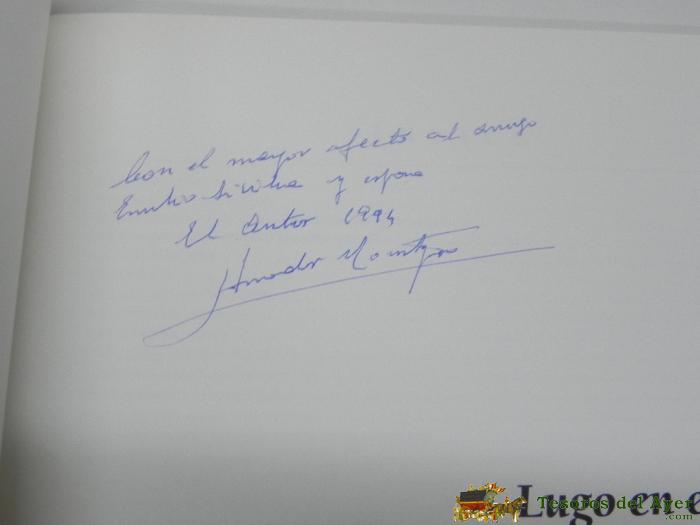 Con el mayor afecto al amigo
Emilio y esposa
El Autor 1994
Amador
Lugo en
Tesoros del Ayer
.com